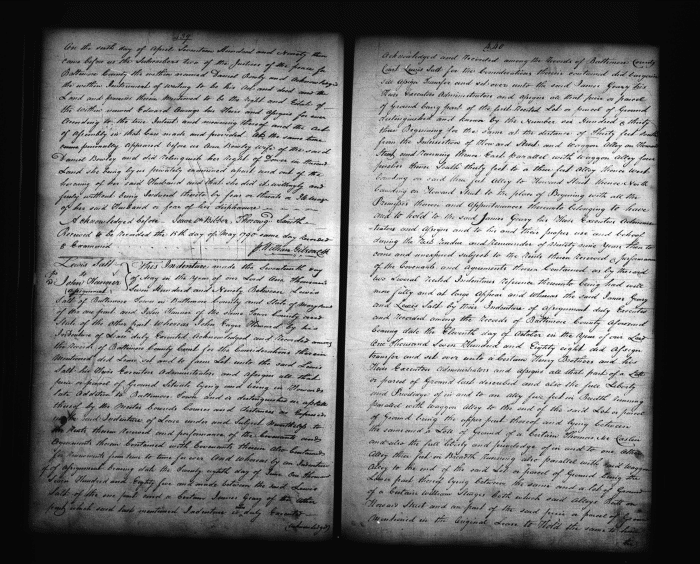 439
On the sixth day of April Seventeen Hundred and Ninety then
came before us the Subscribers two of the Justices of the peace for
Baltimore County the within named Daniel Bowly and Acknowledged
the within Instrument of writing to be his act and deed and the
Land and premises therein Mentioned to be the right and Estate of
the within named Edward his Heirs and Assigns for ever
According to the true Intent and meaning thereof and the Act
of Assembly in that Case made and provided At the same time
personally appeared before us Ann Bowly wife of the said
Daniel Bowly and did relinquish her Right of Dower in the
Land she being by us privately examined apart and out of the
hearing of her said Husband and that she did it willingly and
freely without being induced thereto by fear or threats of Ill usage
of her said Husband or fear of his displeasure
Acknowledged before
Received to be Recorded the 11th day of May 1790 same day Recorded
& Examined
William Gibson Clk
Lewis Salt
to
John Hanner
Assignment
This Indenture made the Seventeenth day
of in the Year of our Lord One thousand
Seven Hundred and Ninety Between Lewis
Salt of Baltimore Town in Baltimore County and State of Maryland
of the one part and John Hanner of the Same Town County and
State of the other part Whereas John Eager Howard by his
Indenture of Lease duly Executed Acknowledged and Recorded among
the Records of Baltimore County Court for the Considerations therein
Mentioned did Lease set and to farm Let unto the said Lewis
Salt his Heirs Executors Administrators and Assigns all that
piece or parcel of Ground Situate lying and being in Howards
late Addition to Baltimore Town and is distinguished on
thereof by the Metes Bounds Courses and distances as Expressed
in the said Indenture of Lease under and Subject Nevertheless to
the Rents therein reserved and performance of the Covenants and
Agreements therein Contained with Covenants therein also Contained
for renewments from time to time for ever And whereas by an Indenture
of Assignment bearing date the Twenty eighth day of One thousand
Seven Hundred and Eighty five and made between the said Lewis
Salt of the one part and a Certain James Geary of the other
part which said last mentioned Indenture is duly Executed
Acknowledged
440
Acknowledged and recorded among the Records of Baltimore County
Court Lewis Salt for the Considerations therein contained did Bargain
sell Assign transfer and set over unto the said James Geary his
Heirs Executors Administrators and Assigns all that piece or parcel
of Ground being part of the Lot or parcel of Ground
distinguished and known by the Number six Hundred & thirty
three Beginning for the Same at the distance of Thirty feet
from the Intersection of Howard Street and Waggon Alley on Howard
Street and running thence East parallel with Waggon Alley four
perches thence South thirty feet to a then feet Alley thence west
bounding on said ten feet Alley to Howard Street thence North
bounding on Howard Street to the place of Beginning with all the
Premises thereon and Appurtenances thereunto belonging to have
and to hold to the said James Geary his Heirs Executors Administrators
and Assigns and to his and their proper use and behoof
during the said residue and Remainder of Ninety nine Years then to
come and unexpired subject to the Rents therein Reserved & performance
of the Covenants and Agreements therein Contained as by the said
two Several recited Indentures reference thereunto being had will
more fully and at large Appear and Whereas the said James Geary
and Lewis Salt by their Indenture of Assignment duly Executed
and Recorded among the records of Baltimore County Aforesaid
bearing date the Eleventh day of October in the Year of our Lord
One thousand Seven Hundred and Eighty eight did Assign
transfer and set over unto a Certain Henry and his
Heirs Executors Administrators and Assigns all that part of a Lot
or parcel of Ground last described and also the free Liberty
and Priviledge of in and to an Alley five feet in Breadth running
parallel with Waggon Alley to the end of the said Lot or parcel
of Ground being the upper part thereof and lying between
the same and a Lot of Ground of a Certain Thomas
and also the full liberty and priviledge of in and to one other
Alley three feet in Breadth running also parallel with said Waggon
Alley to the end of the said Lot or parcel of Ground being the
Lower part thereof lying between the same and a Lot of Ground
of a Certain William both which said Alleys
Howard Street and are part of the said piece or parcel of Ground
Mentioned in the Original Lease to Hold the same to
the